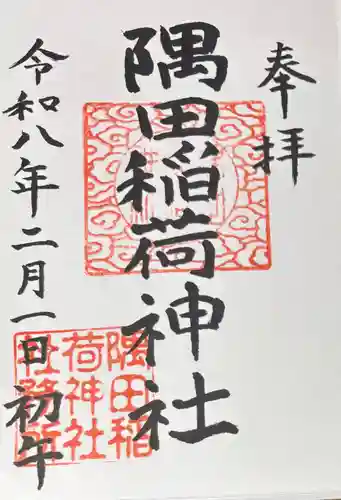 奉拝
隅田稲荷神社
令和八年二月一日 初午
隅田稲
荷神社
社務所